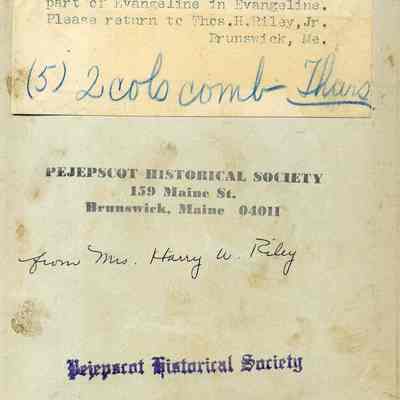 part of Evangeline in Evangeline.
Please return to Thos.H.Riley,Jr.
Brunswick, Me.
(5) 2 cols comb Thurs
PEJEPSCOT HISTORICAL SOCIETY
159 Maine St.
Brunswick, Maine 04011
from Mrs. Harry W. Riley
Pejepscot Historical Society